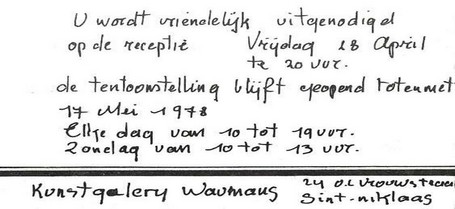 U wordt vriendelijk uitgenodigd
op de receptie Vrijdag 28 April
te 20 uur.
de tentoonstelling blijft geopend totenmet
17 Mei 1978
Elke dag van 10 tot 19 uur.
Zondag van 10 tot 13 uur.
Kunstgalery Waumans 24 O.L Vrouwstraat
Sint-niklaas